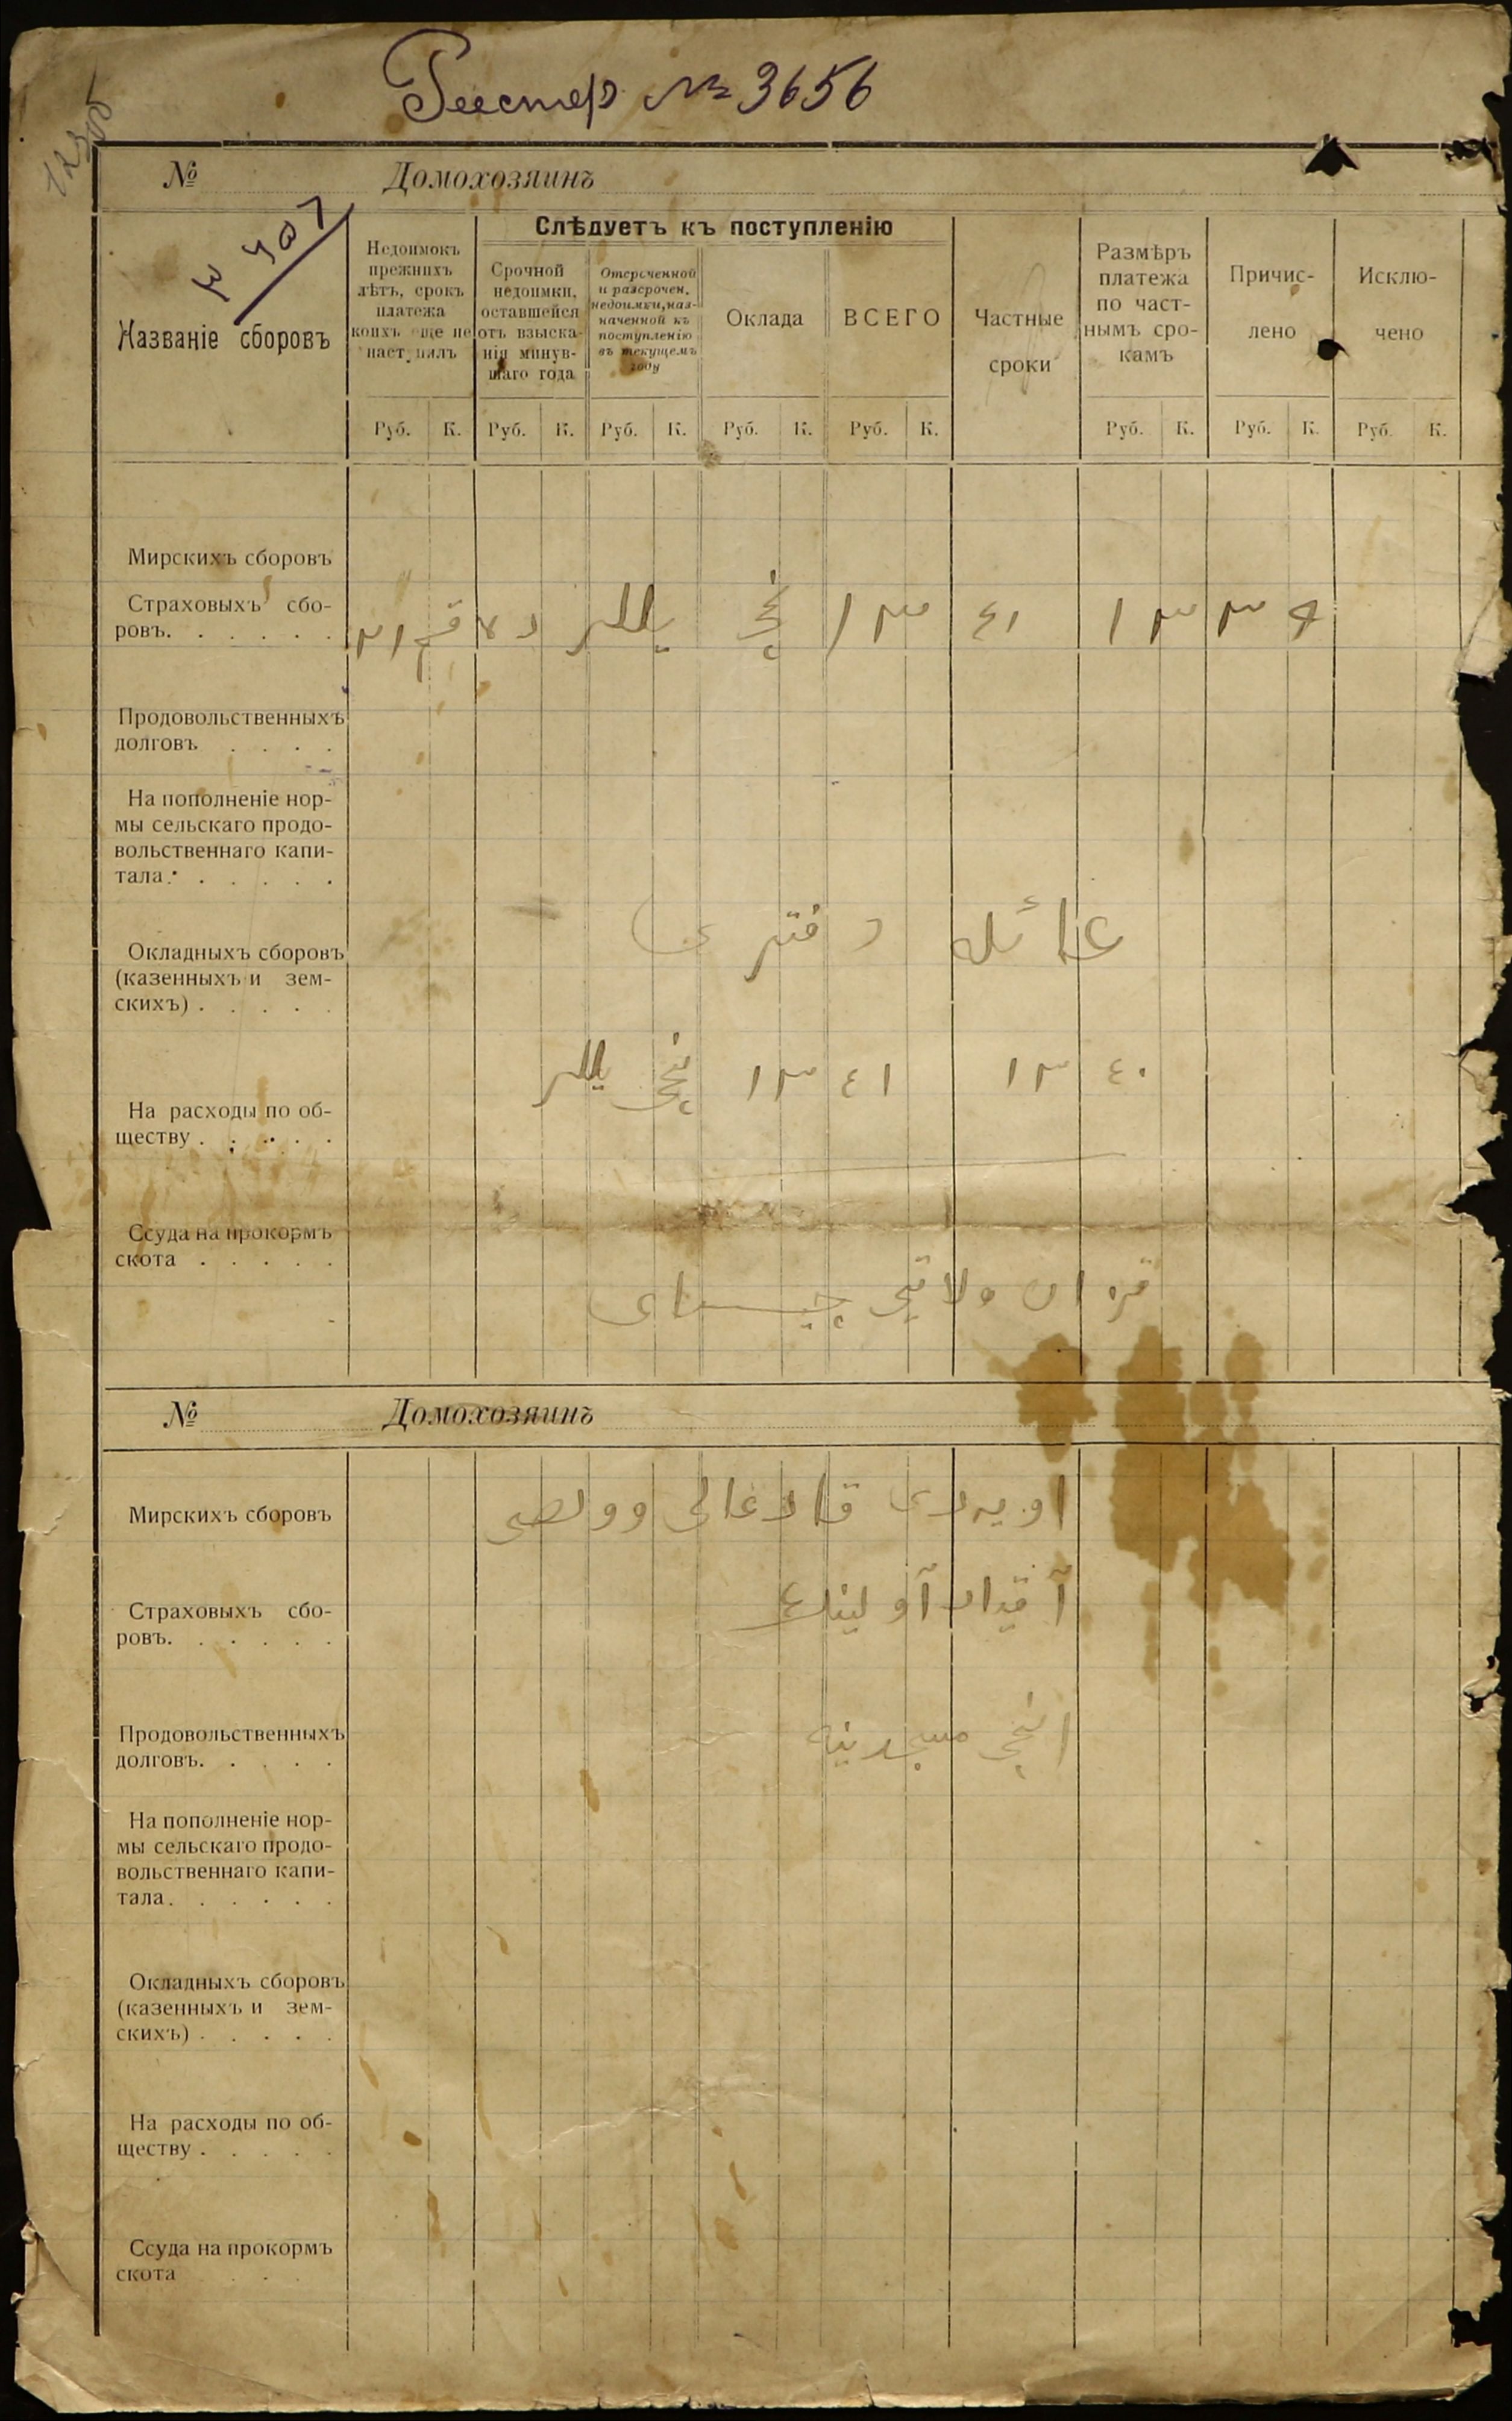 Реестр № 3656
№ Домохозяинъ
Названіе сборовъ
Недоимокъ прежнихъ лѣтъ, срокъ платежа коихъ еще не наступилъ
Слѣдуетъ къ поступленію
Срочной недоимки, оставшейся отъ взыска-нія минув-шаго года
Отсроченной и разсрочен. недоимки, наз-наченной къ поступленію въ текущемъ году
Оклада
ВСЕГО
Частные сроки
Размѣръ платежа по част-нымъ сро-камъ
Причис-лено
Исклю-чено
Руб. К. Руб. К. Руб. К. Руб. К. Руб. К. Руб. К. Руб. К. Руб. К.
Мирскихъ сборовъ
Страховыхъ сбо-
ровъ. . . . . .
١٣٣٩ ٤١ ١٣ نچی یللر
Продовольственныхъ
долговъ . . . .
На пополненіе нор-
мы сельскаго продо-
вольственнаго капи-
тала. . . . . .
عائله دفتری
Окладныхъ сборовъ
(казенныхъ и зем-
скихъ) . . . . .
١٣٤٠ ١٣٤١ نچی یللر
На расходы по об-
ществу . . . . .
Ссуда на прокормъ
скота . . . . .
قزان ولاتی چیستای
№ Домохозяинъ
Мирскихъ сборовъ
اویزدی
Страховыхъ сбо-
ровъ. . . . . .
Продовольственныхъ
долговъ. . . . .
١نچی مسجدینه
На пополненіе нор-
мы сельскаго продо-
вольственнаго капи-
тала. . . . . .
Окладныхъ сборовъ
(казенныхъ и зем-
скихъ) . . . . .
На расходы по об-
ществу . . . . .
Ссуда на прокормъ
скота . . . .